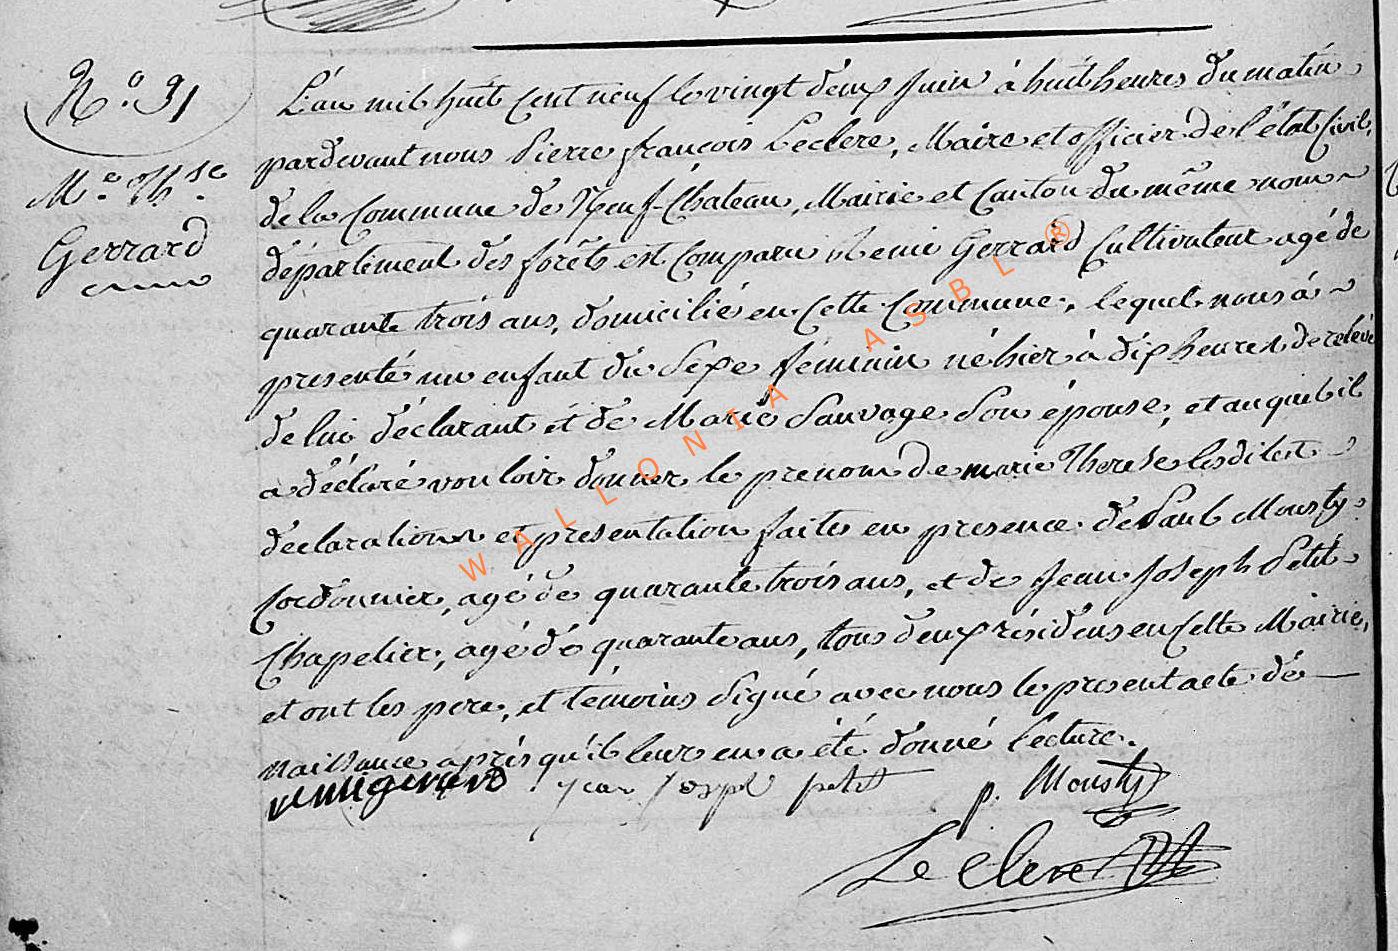 N.° 31
M.e Th.se
Gerrard
L'an mil huit cent neuf le vingt deux Juin à huit heures du matin
pardevant nous Pierre françois Leclere, Maire et officier de l'état Civil,
de la Commune de Neuf-Chateau, Mairie et Canton du même nom ~
département des forêts est Comparu Gerrard Cultivateur agé de
quarante trois ans, domicilié en cette Commune, lequel nous à ~
presenté un enfant du Sexe féminin né hier à dix heures de relevé
de lui déclarant et de Marie Sauvage Son épouse, et auquel il
a déclaré vouloir donner le prenom de marie Therese lesdites
declarations et presentation faites en presence de Paul Mousty
Cordonnier, agé de quarante trois ans, et de Jean Joseph Petit
Chapelier, agé de quarante ans, tous deux résidens en Cette Mairie,
et ont les pere, et témoins Signé avec nous le present acte de
naissance après qu'il leur en a été donné lecture.
gerard jean josph petit p. Mousty
Le Clere
WALLONIA ASBL ®